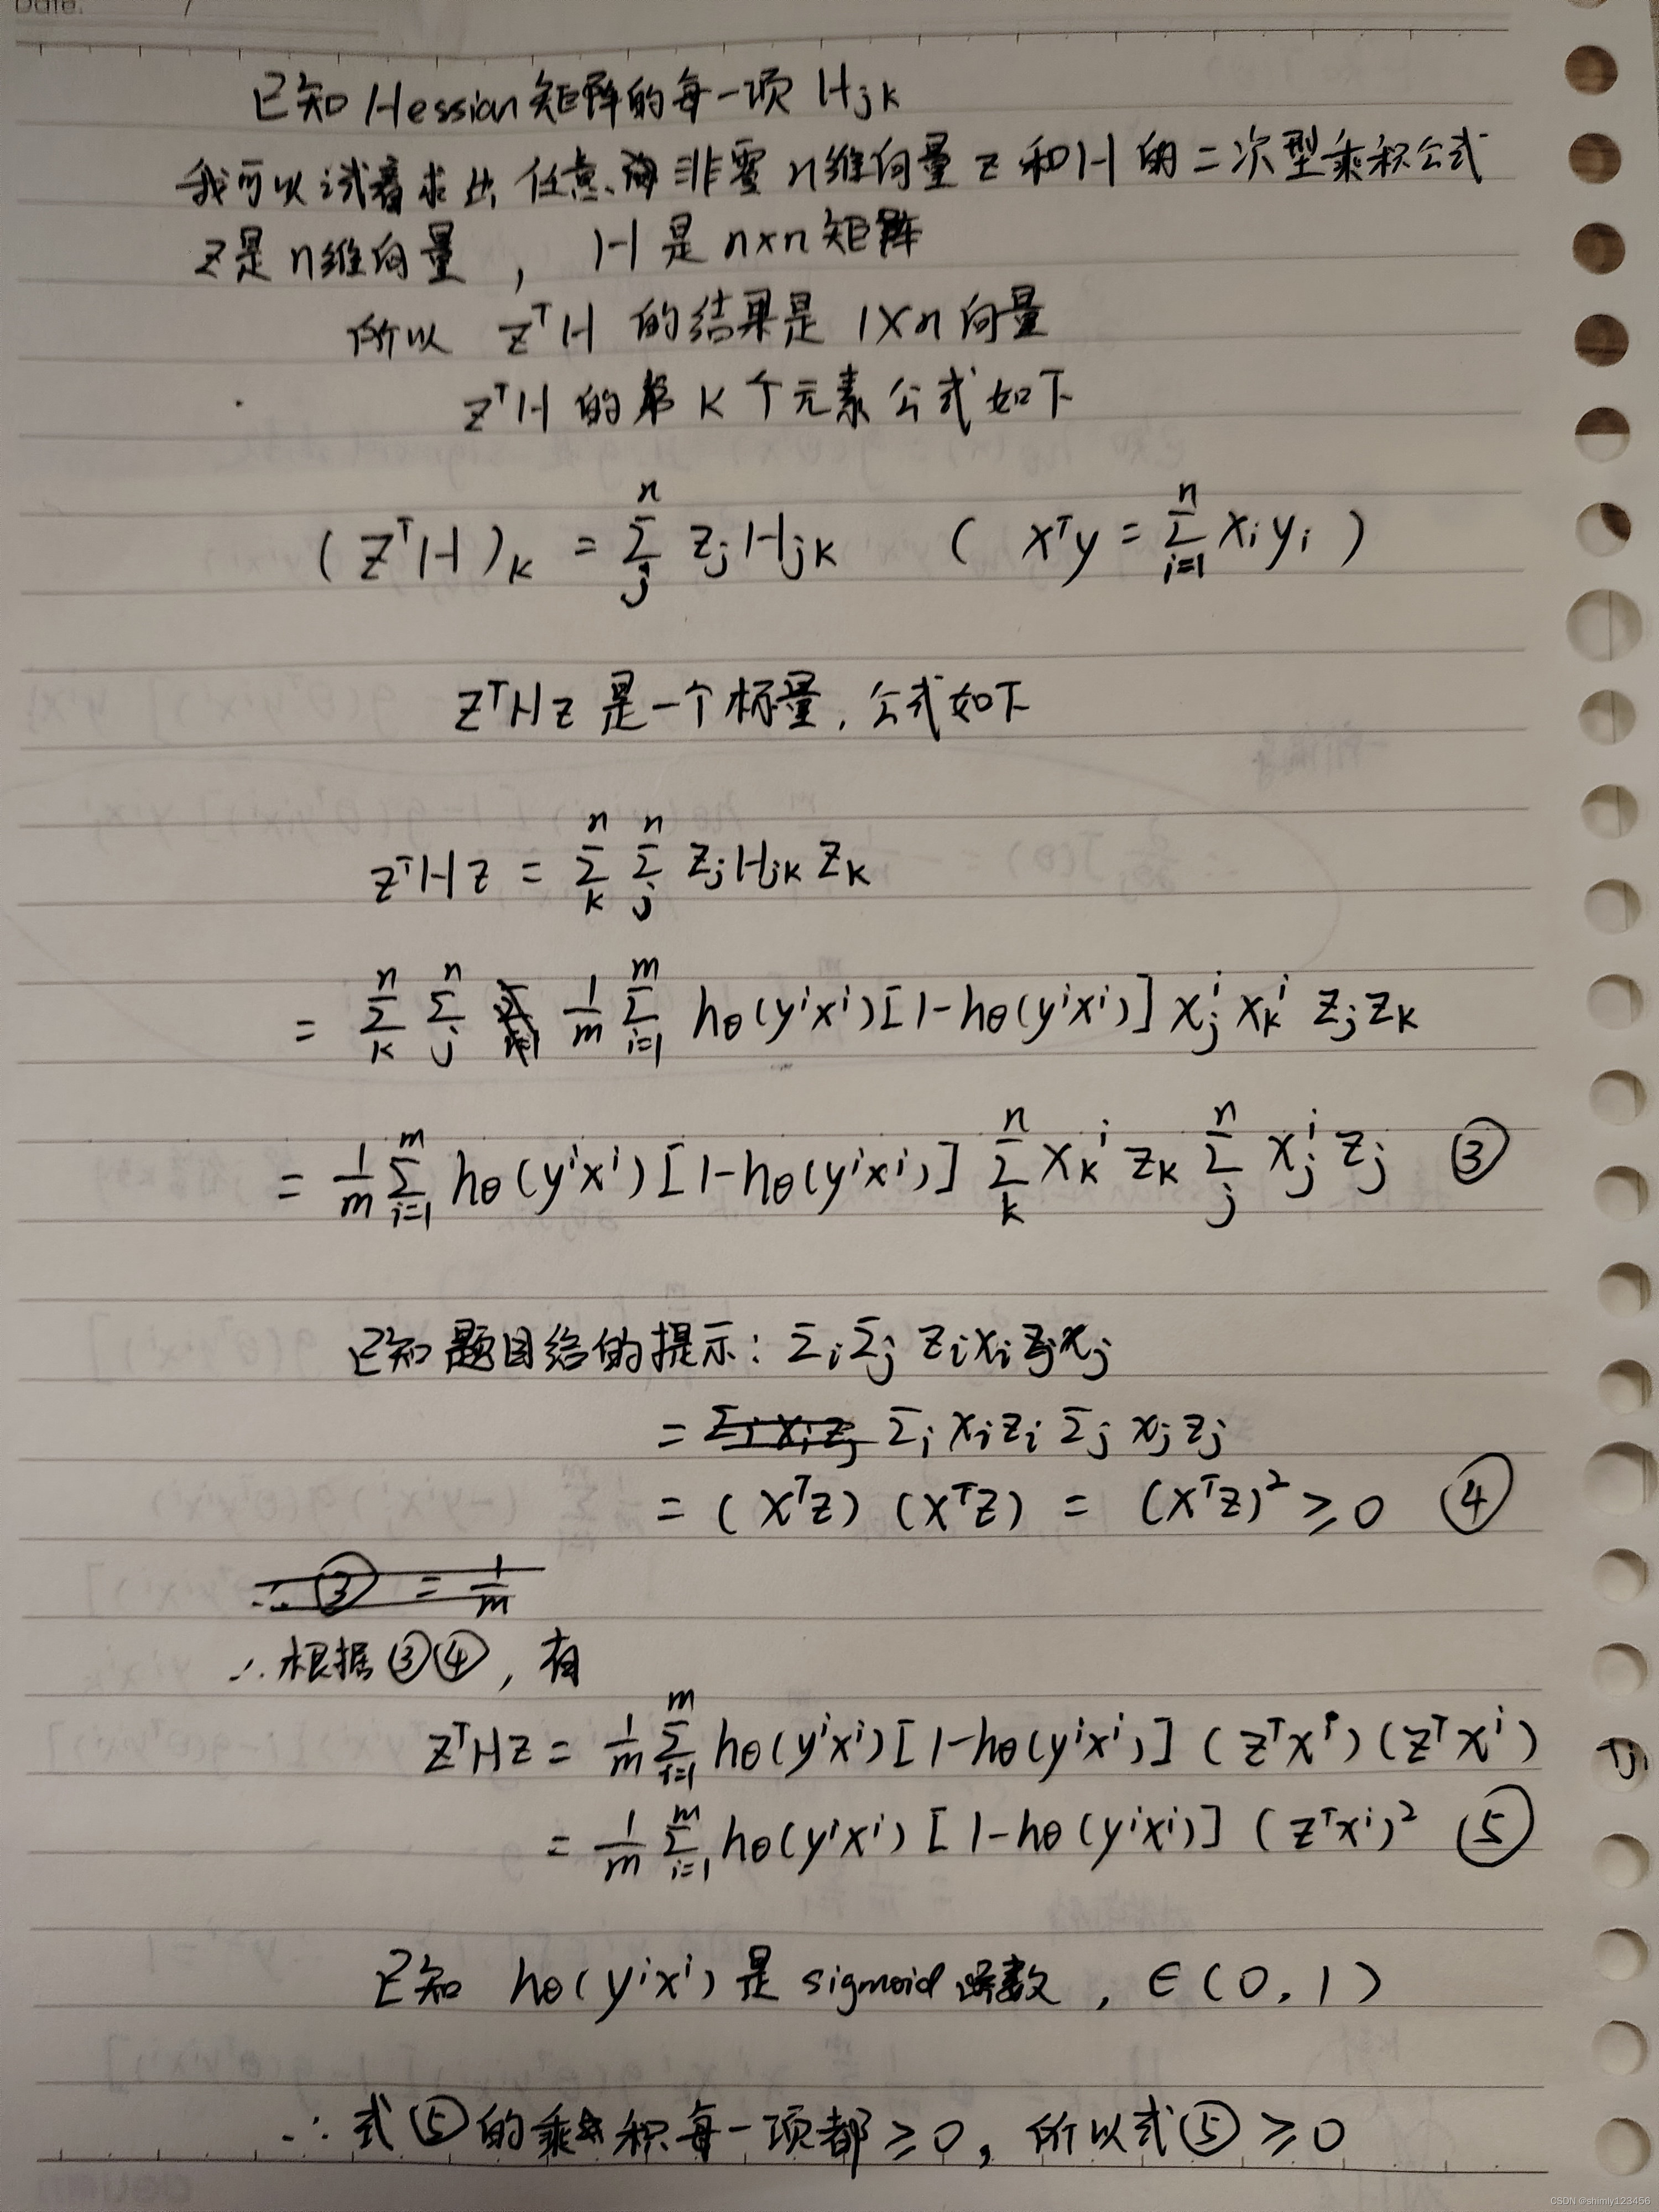 Date. /
已知Hessian矩阵的每一项 Hjk
我可以试着求出 任意 非零 n维向量 z 和H 的二次型乘积公式
z是n维向量 , H是n×n矩阵
所以 zᵀH 的结果是 1×n向量
zᵀH 的第 k 个元素公式如下
(zᵀH)ₖ = Σⱼⁿ zⱼHⱼₖ ( xᵀy = Σᵢ₌₁ⁿ xᵢyᵢ )
zᵀHz 是一个标量, 公式如下
zᵀHz = Σₖⁿ Σⱼⁿ zⱼHⱼₖzₖ
= Σₖⁿ Σⱼⁿ 1/m Σᵢ₌₁ᵐ hθ(yⁱxⁱ)[1-hθ(yⁱxⁱ)] xⱼⁱ xₖⁱ zⱼzₖ
= 1/m Σᵢ₌₁ᵐ hθ(yⁱxⁱ)[1-hθ(yⁱxⁱ)] Σₖⁿ xₖⁱ zₖ Σⱼⁿ xⱼⁱ zⱼ ③
已知题目给的提示: ΣᵢΣⱼ zᵢxᵢzⱼxⱼ
= Σᵢ xᵢzᵢ Σⱼ xⱼzⱼ
= (xᵀz) (xᵀz) = (xᵀz)² ≥ 0 ④
∴ ③ = 1/m
∴根据③④, 有
zᵀHz = 1/m Σᵢ₌₁ᵐ hθ(yⁱxⁱ)[1-hθ(yⁱxⁱ)] (zᵀxⁱ)(zᵀxⁱ)
= 1/m Σᵢ₌₁ᵐ hθ(yⁱxⁱ)[1-hθ(yⁱxⁱ)] (zᵀxⁱ)² ⑤
已知 hθ(yⁱxⁱ)是 sigmoid 函数, ∈(0,1)
∴式⑤的乘积每一项都≥0, 所以式⑤≥0
CSDN @shimly123456